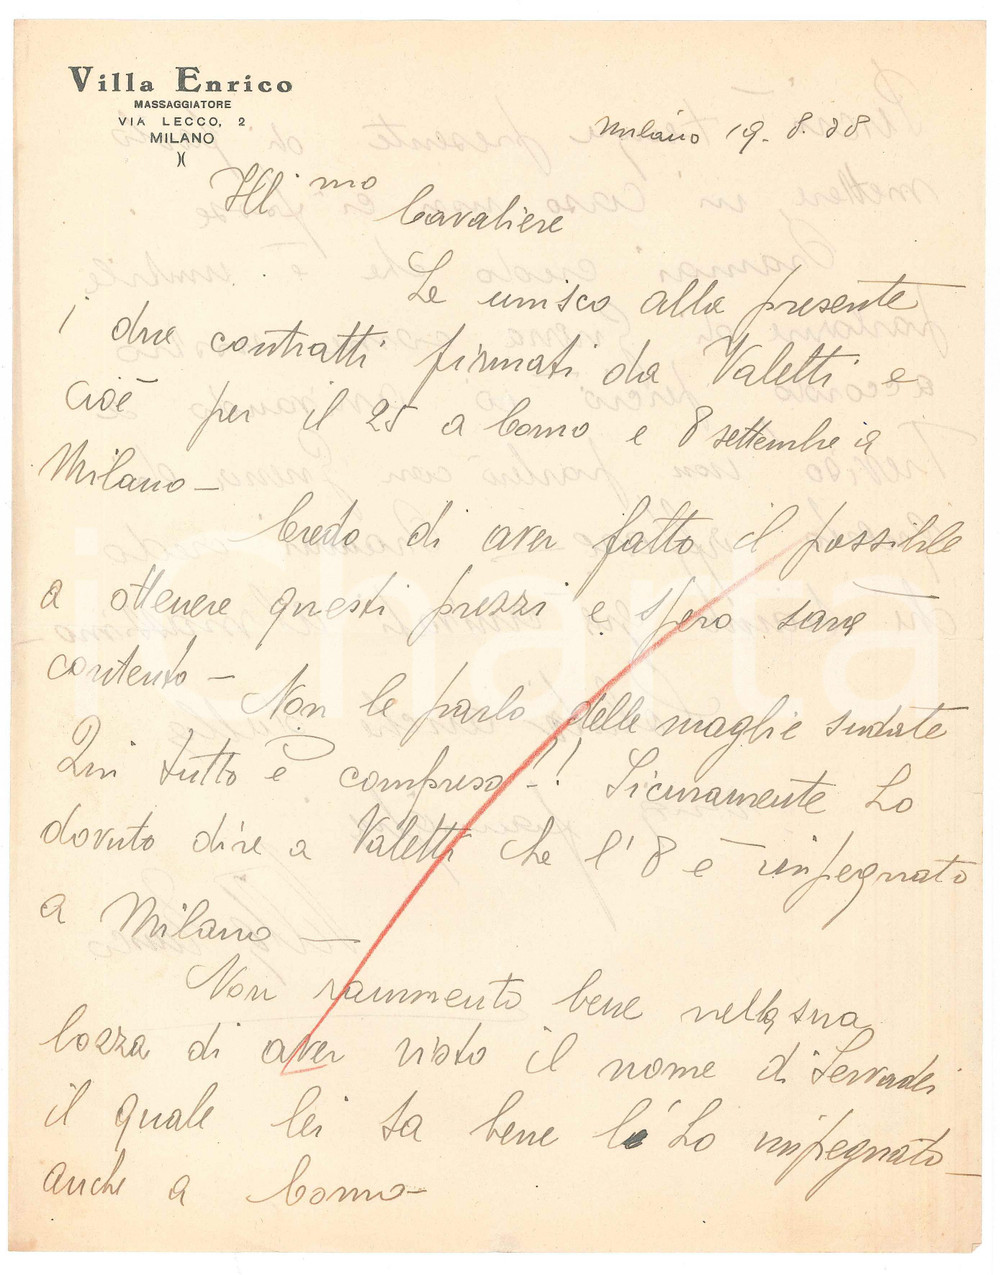 Villa Enrico
MASSAGGIATORE
VIA LECCO, 2
MILANO
Milano 19. 8. 38
Ill mo Cavaliere
Le unisco alla presente
i due contratti firmati da Valetti e
cioè per il 25 a Como e 8 settembre a
Milano -
Credo di aver fatto il possibile
a ottenere questi prezzi e spero sarà
contento -
Non le parlo delle maglie sudate
Qui tutto è compreso -!! Sicuramente ho
dovuto dire a Valetti che l'8 è impegnato
a Milano -
Non rammento bene nella sua
bozza di aver visto il nome di Servadei
il quale lei sa bene l'ho impegnato
anche a Como -
iCharta